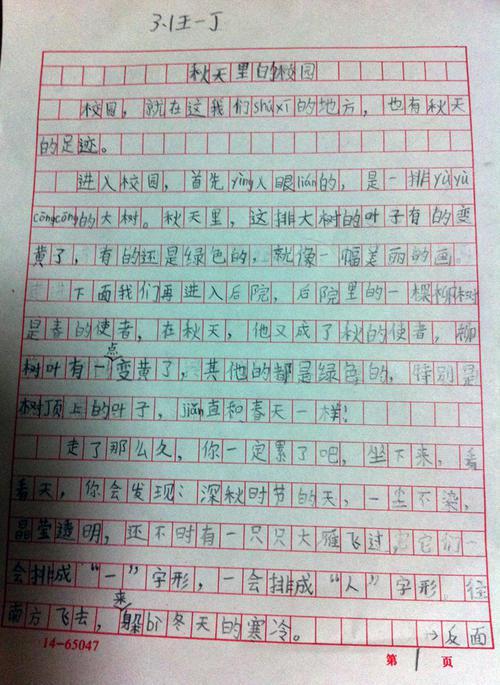 3.1王一丁
秋天里的校园
校园，就在这我们shúxī的地方，也有秋天
的足迹。
进入校园，首先yìng入眼lián的，是一排yùyù
cōngcōng的大树。秋天里，这排大树的叶子有的变
黄了，有的还是绿色的，就像一幅美丽的画。
下面我们再进入后院，后院里的一棵柳树
是春的使者，在秋天，他又成了秋的使者，柳
树叶有一点变黄了，其他的都是绿色的，特别是
树顶上的叶子，jiǎn直和春天一样！
走了那么久，你一定累了吧，坐下来，看
看天，你会发现：深秋时节的天，一尘不染，
晶莹透明，还不时有一只只大雁飞过，它们一
会排成“一”字形，一会排成“人”字形，径
南方飞去，来躲bì冬天的寒冷。
→反面
14-65047
第1页